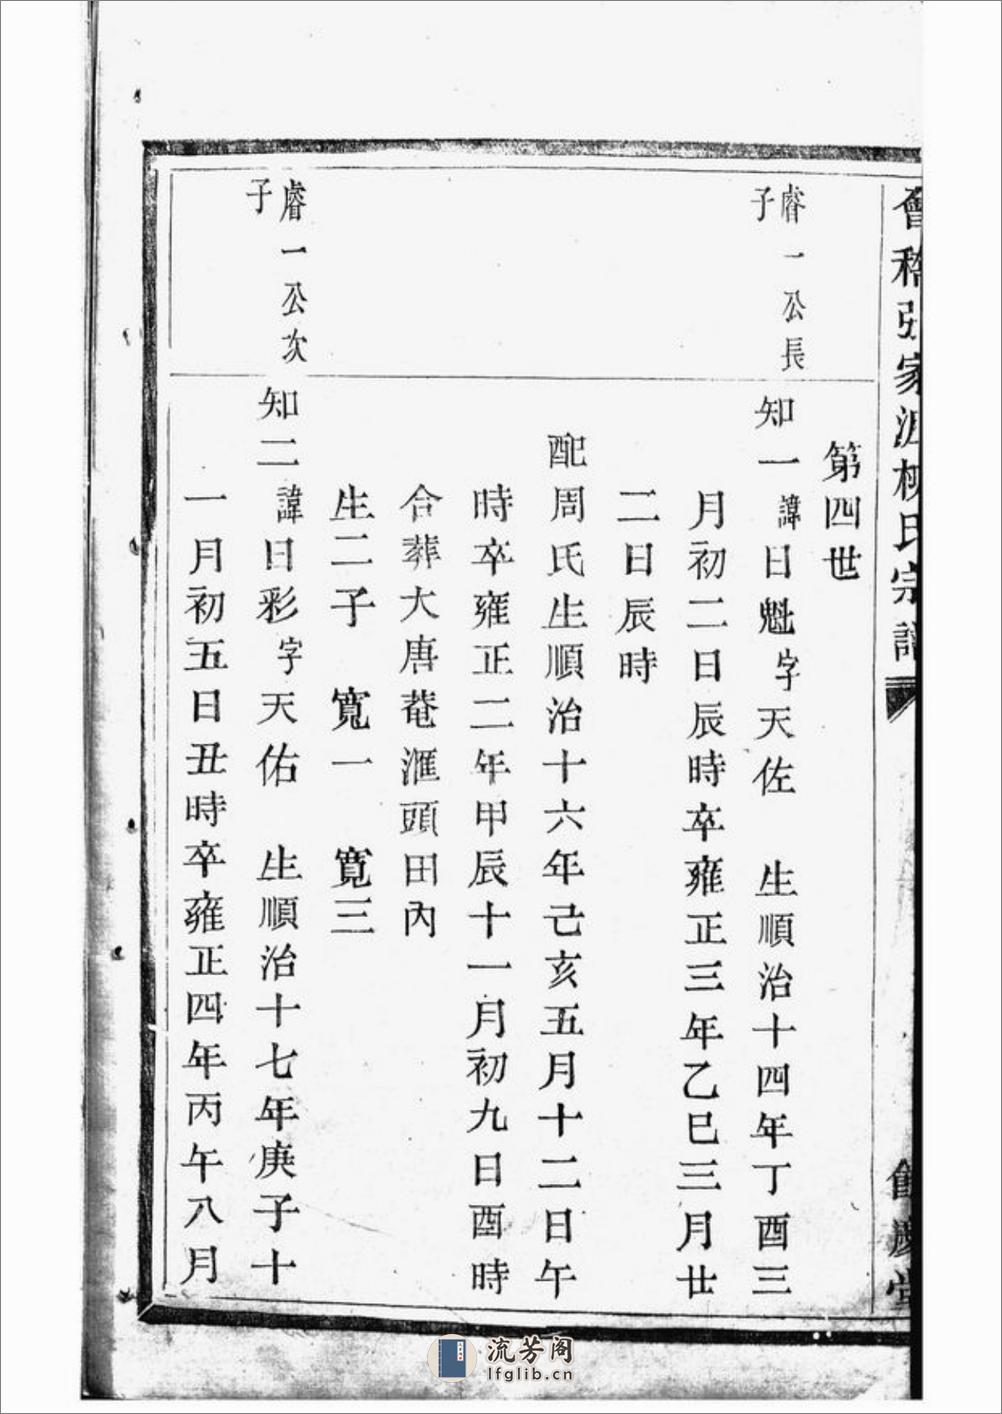 會稽張家瀝柳氏宗譜
餘慶堂
第四世
睿一公長
子
知一諱日魁字天佐 生順治十四年丁酉三
月初二日辰時卒雍正三年乙巳三月廿
二日辰時
配周氏生順治十六年己亥五月十二日午
時卒雍正二年甲辰十一月初九日酉時
合葬大唐菴滙頭田內
生二子 寬一 寬三
睿一公次
子
知二諱日彩字天佑 生順治十七年庚子十
一月初五日丑時卒雍正四年丙午八月
流芳阁
lfglib.cn